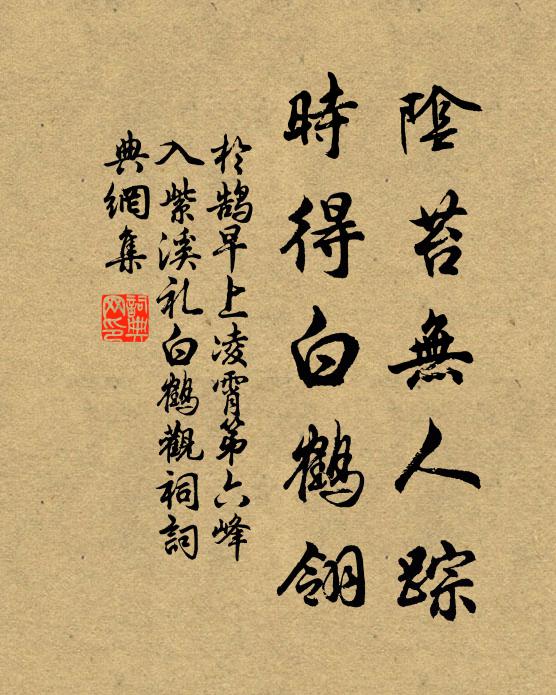 陰苔無人踪
時得白鶴翎
於鵠早上凌霄第六峰
入紫溪礼白鶴觀祠詞
典網集
詞典网印